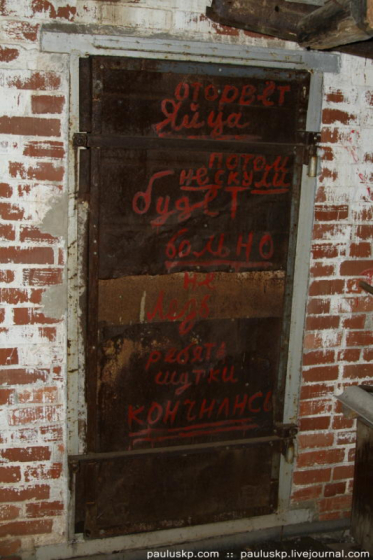 оторвет
Яйца
потом
не скули
будет
больно
не
лезь
ребята
шутки
кончились
www.pauluskp.com :: pauluskp.livejournal.com